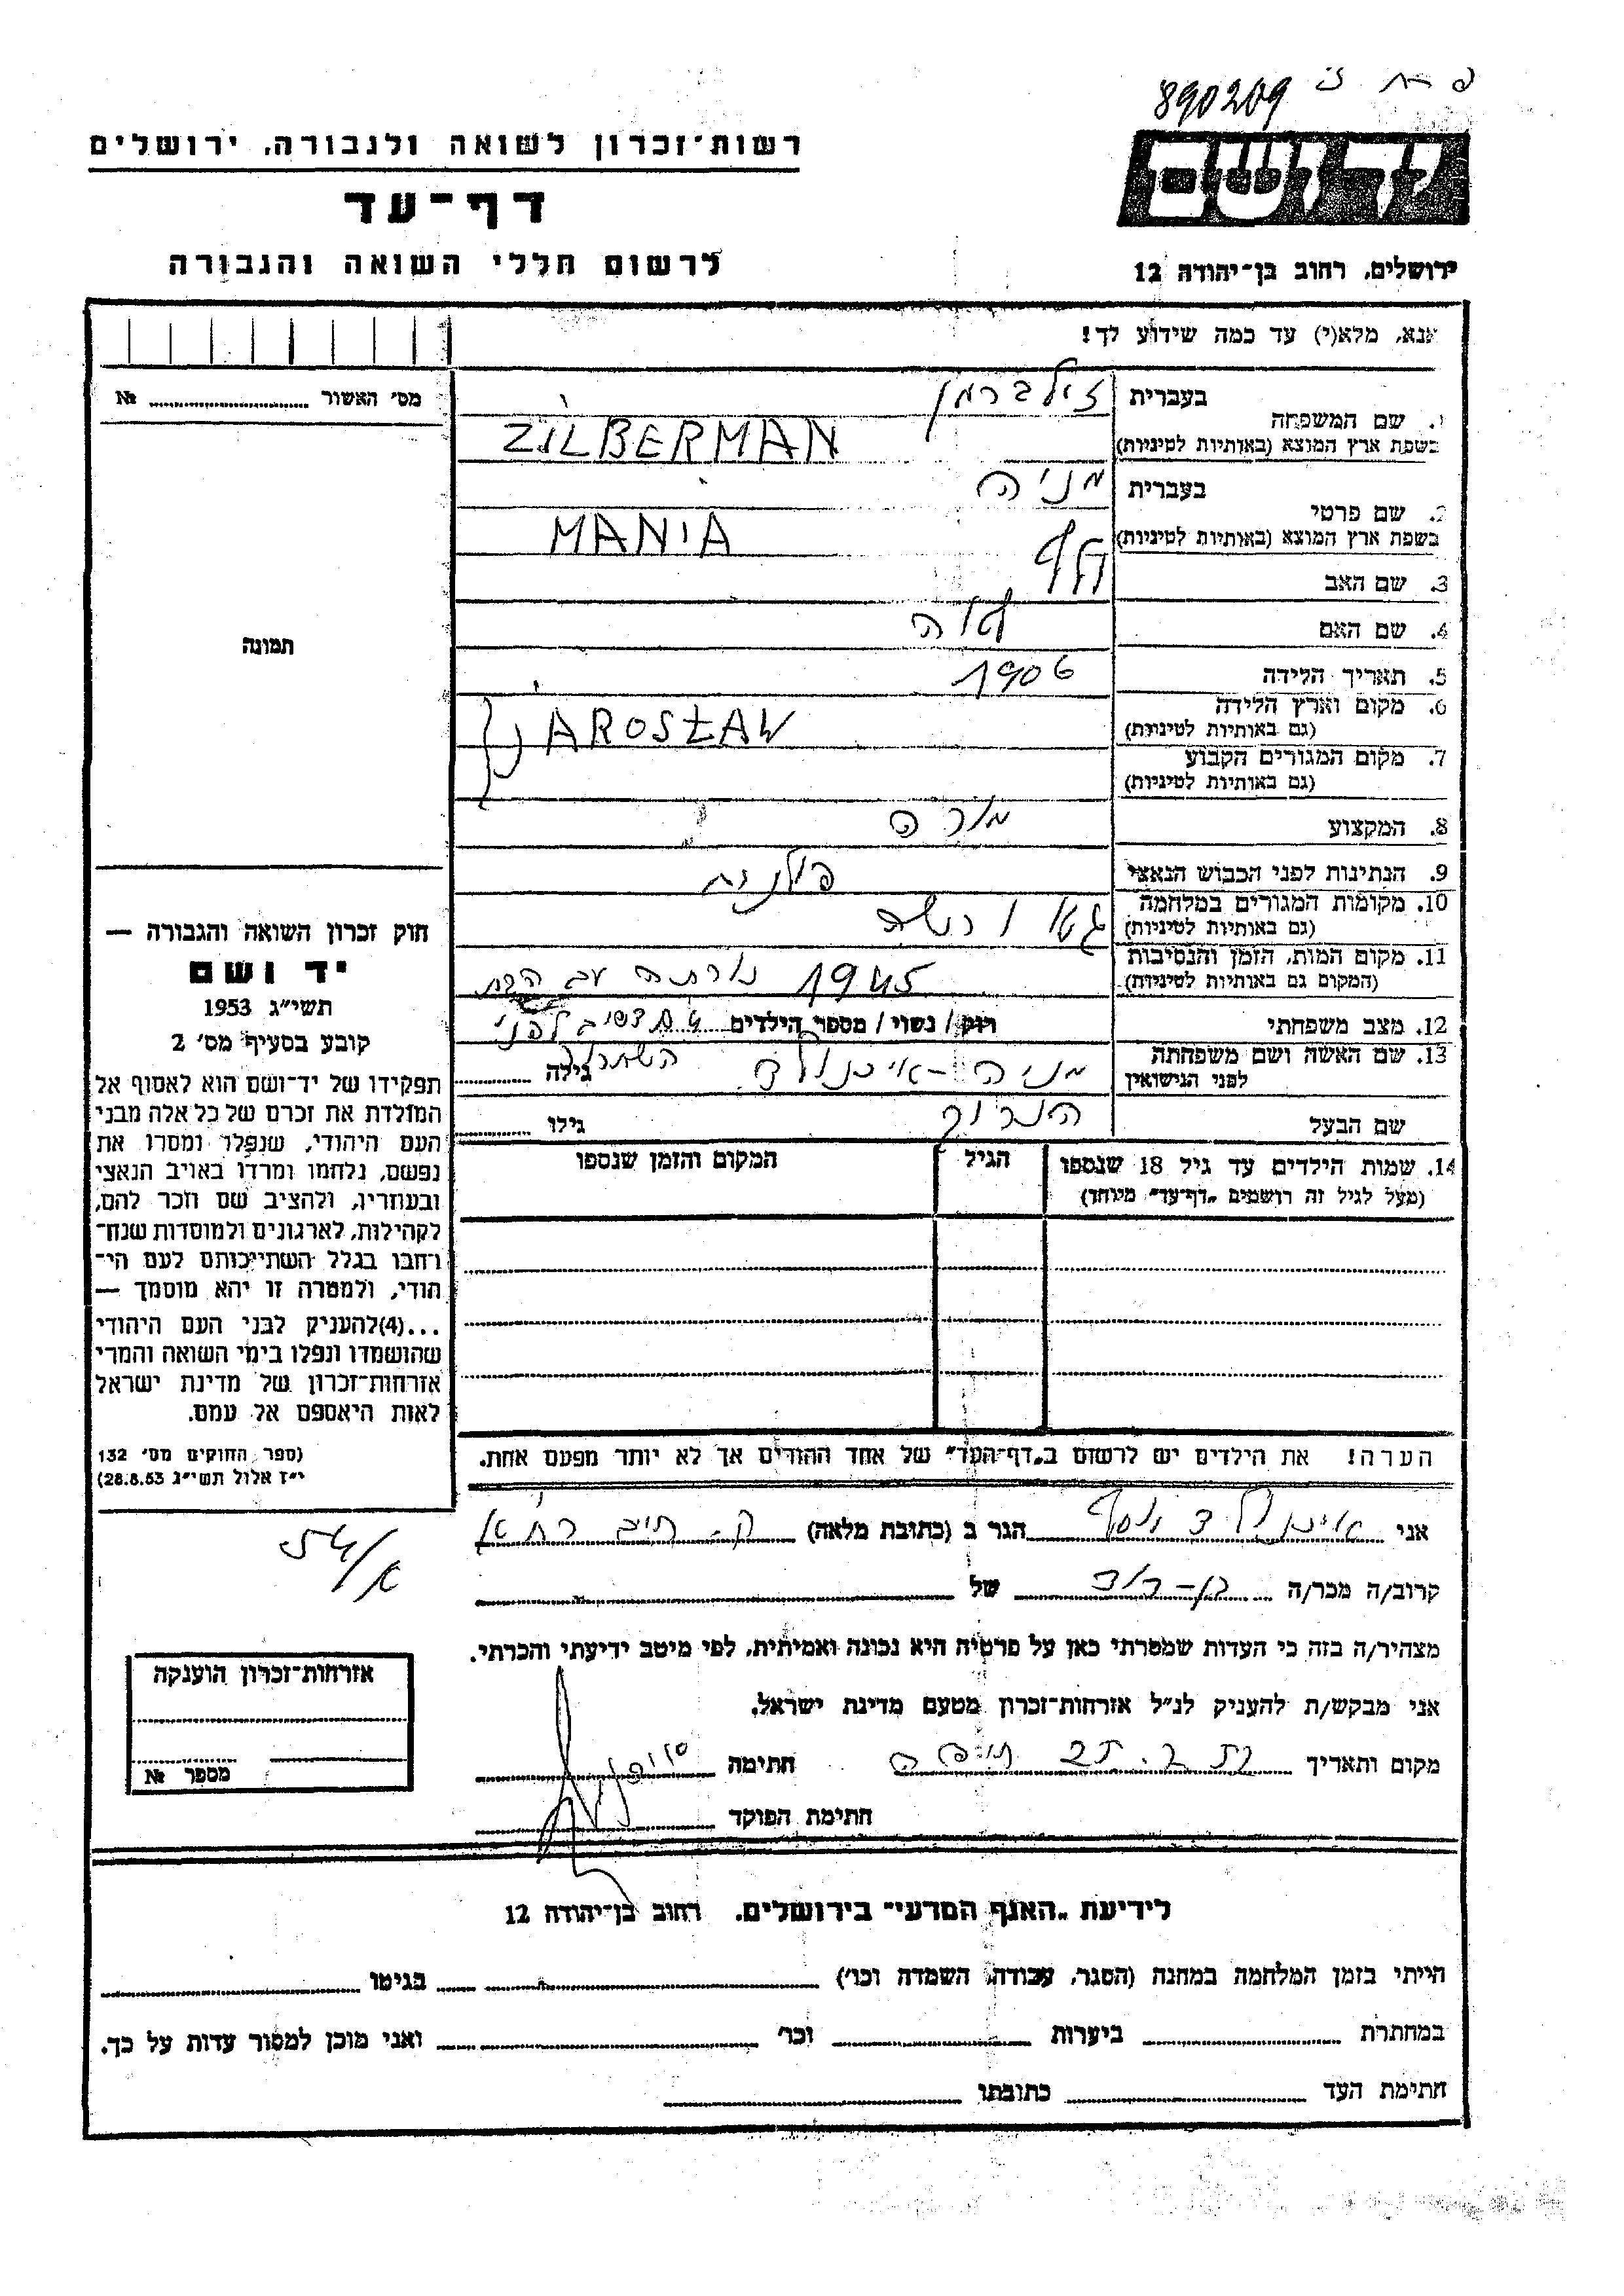 890209
רשות־זכרון לשואה ולגבורה, ירושלים
דף־עד
לרשום חללי השואה והגבורה
יד ושם
ירושלים, רחוב בן־יהודה 12
אנא, מלא(י) עד כמה שידוע לך!
מס׳ האשור №
1. שם המשפחה
בעברית זילברמן
בשפת ארץ המוצא (באותיות לטיניות) ZILBERMAN
2. שם פרטי
בעברית מניה
בשפת ארץ המוצא (באותיות לטיניות) MANIA
3. שם האב
4. שם האם
5. תאריך הלידה 1906
6. מקום וארץ הלידה
(גם באותיות לטיניות) JAROSŁAW
7. מקום המגורים הקבוע
(גם באותיות לטיניות)
8. המקצוע מורה
9. הנתינות לפני הכבוש הנאצי פולנית
10. מקומות המגורים במלחמה
(גם באותיות לטיניות)
11. מקום המות, הזמן והנסיבות
(המקום גם באותיות לטיניות) 1945 נורתה עם הבת
12. מצב משפחתי רווק / נשוי / מספר הילדים
לפני השחרור
13. שם האשה ושם משפחתה
לפני הנישואין מניה גילה
שם הבעל הנרוך גילו
14. שמות הילדים עד גיל 18 שנספו
(מעל לגיל זה רושמים „דף־עד״ מיוחד)
הגיל
המקום והזמן שנספו
הערה! את הילדים יש לרשום ב„דף־העד״ של אחד ההורים אך לא יותר מפעם אחת.
תמונה
חוק זכרון השואה והגבורה —
יד ושם
תשי״ג 1953
קובע בסעיף מס׳ 2
תפקידו של יד־ושם הוא לאסוף אל
המולדת את זכרם של כל אלה מבני
העם היהודי, שנפלו ומסרו את
נפשם, נלחמו ומרדו באויב הנאצי
ובעוזריו, ולהציב שם וזכר להם,
לקהילות, לארגונים ולמוסדות שנח־
רחבו בגלל השתייכותם לעם הי־
הודי, ולמטרה זו יהא מוסמך —
...(4)להעניק לבני העם היהודי
שהושמדו ונפלו בימי השואה והמרי
אזרחות־זכרון של מדינת ישראל
לאות היאספם אל עמם.
(ספר החוקים מס׳ 132
י״ז אלול תשי״ג 28.8.53)
אני יוסף הגר ב (כתובת מלאה) ק.
קרוב/ה מכר/ה בן-דוד של
מצהיר/ה בזה כי העדות שמסרתי כאן על פרטיה היא נכונה ואמיתית, לפי מיטב ידיעתי והכרתי.
אני מבקש/ת להעניק לנ״ל אזרחות־זכרון מטעם מדינת ישראל.
מקום ותאריך חיפה חתימה
חתימת הפוקד
אזרחות־זכרון הוענקה
מספר №
לידיעת „האגף המדעי״ בירושלים, רחוב בן־יהודה 12
הייתי בזמן המלחמה במחנה (הסגר, עבודה, השמדה וכו׳) בגיטו
במחתרת ביערות וכו׳ ואני מוכן למסור עדות על כך.
חתימת העד כתובתו